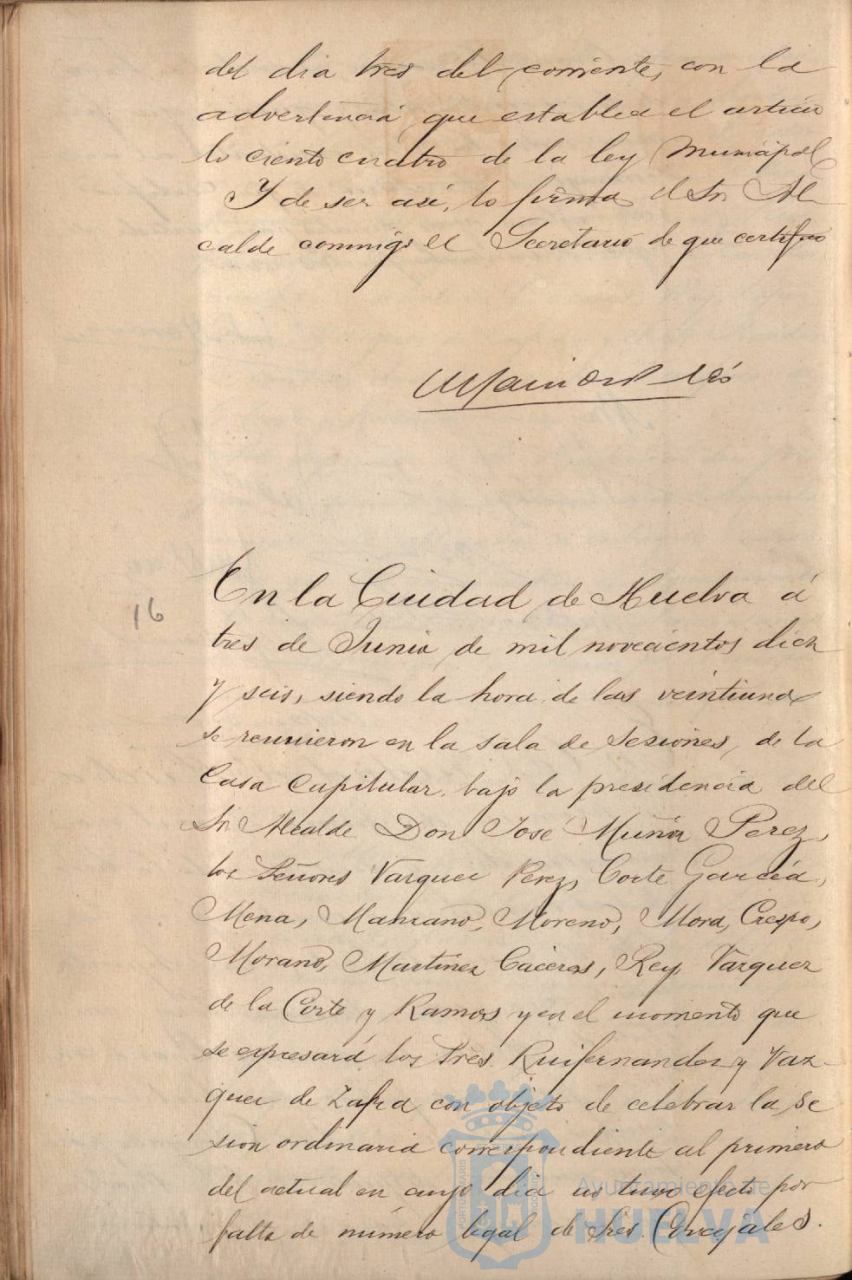 del dia tres del corriente, con la
advertencia que establece el articu
lo ciento cuatro de la ley Municipal
Y de ser asi, lo firma el Sr. Al
calde conmigo el Secretario de que certifico
16
En la Ciudad de Huelva á
tres de Junio de mil novecientos diez
y seis, siendo la hora de las veintiuna
se reunieron en la sala de sesiones, de la
Casa Capitular bajo la presidencia del
Sr. Alcalde Don José Muñoz Perez,
los Señores Vazquez Perez, Corte Garcia,
Mena, Manzano, Moreno, Mora, Crespo,
Morano, Martinez Caceres, Rey, Vazquez
de la Corte y Ramos y en el momento que
se expresará los Sres. Ruifernandez y Vaz-
quez de Zafra con objeto de celebrar la se
sion ordinaria correspondiente al primero
del actual en cuyo dia no tuvo efecto por
falta de número legal de Sres. Concejales.
Ayuntamiento de
HUELVA